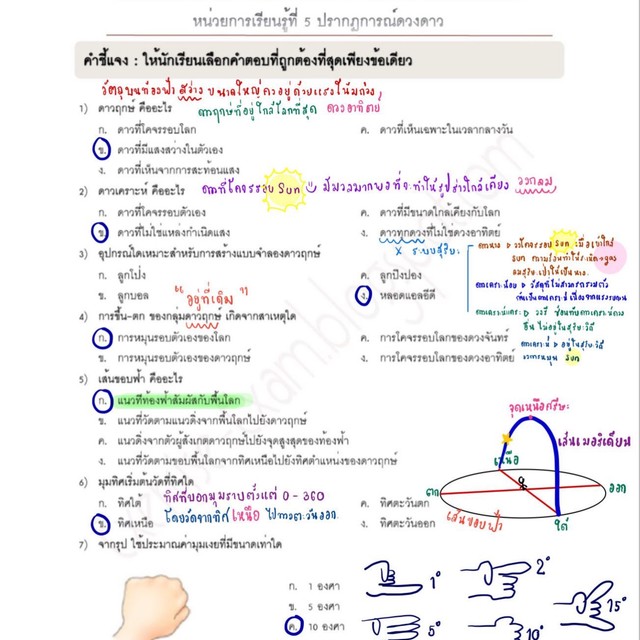 หน่วยการเรียนรู้ที่ 5 ปรากฏการณ์ดวงดาว
คำชี้แจง : ให้นักเรียนเลือกคำตอบที่ถูกต้องที่สุดเพียงข้อเดียว
วัตถุบนท้องฟ้า สว่าง ขนาดใหญ่ คงอยู่ด้วยแรงโน้มถ่วง
1) ดาวฤกษ์ คืออะไร ดาวฤกษ์ที่อยู่ใกล้โลกที่สุด ดวงอาทิตย์
ก. ดาวที่โคจรรอบโลก
ค. ดาวที่เห็นเฉพาะในเวลากลางวัน
ข. ดาวที่มีแสงสว่างในตัวเอง
ง. ดาวที่เห็นจากการสะท้อนแสง
2) ดาวเคราะห์ คืออะไร ดาวที่โคจรรอบ Sun มีมวลมากพอที่จะทำให้รูปร่างใกล้เคียง วงกลม
ก. ดาวที่โคจรรอบตัวเอง
ค. ดาวที่มีขนาดใกล้เคียงกับโลก
ข. ดาวที่ไม่ใช่แหล่งกำเนิดแสง
ง. ดาวทุกดวงที่ไม่ใช่ดวงอาทิตย์
X ระบบสุริยะ
3) อุปกรณ์ใดเหมาะสำหรับการสร้างแบบจำลองดาวฤกษ์
ก. ลูกโป่ง
ค. ลูกปิงปอง
ข. ลูกบอล
ง. หลอดแอลอีดี
ดาวหาง โคจรรอบ Sun เมื่อเข้าใกล้
Sun
"อยู่ที่เดิม"
4) การขึ้น-ตก ของกลุ่มดาวฤกษ์ เกิดจากสาเหตุใด
ก. การหมุนรอบตัวเองของโลก
ค. การโคจรรอบโลกของดวงจันทร์
ข. การหมุนรอบตัวเองของดาวฤกษ์
ง. การโคจรรอบโลกของดวงอาทิตย์
Sun
5) เส้นขอบฟ้า คืออะไร
ก. แนวที่ท้องฟ้าสัมผัสกับพื้นโลก
ข. แนวที่วัดตามแนวดิ่งจากพื้นโลกไปยังดาวฤกษ์
ค. แนวดิ่งจากตัวผู้สังเกตดาวฤกษ์ไปยังจุดสูงสุดของท้องฟ้า
ง. แนวที่วัดตามขอบพื้นโลกจากทิศเหนือไปยังทิศตำแหน่งของดาวฤกษ์
จุดเหนือศีรษะ
เส้นเมอริเดียน
เหนือ
ตก
ออก
ใต้
เส้นขอบฟ้า
6) มุมทิศเริ่มต้นวัดที่ทิศใด
ก. ทิศใต้
ทิศที่บอกมุมราบตั้งแต่ 0 - 360
ค. ทิศตะวันตก
ข. ทิศเหนือ
โดยวัดจากทิศเหนือ ไปทางตะวันออก
ง. ทิศตะวันออก
7) จากรูป ใช้ประมาณค่ามุมเงยที่มีขนาดเท่าใด
ก. 1 องศา
ข. 5 องศา
ค. 10 องศา
1°
2°
5°
10°
15°